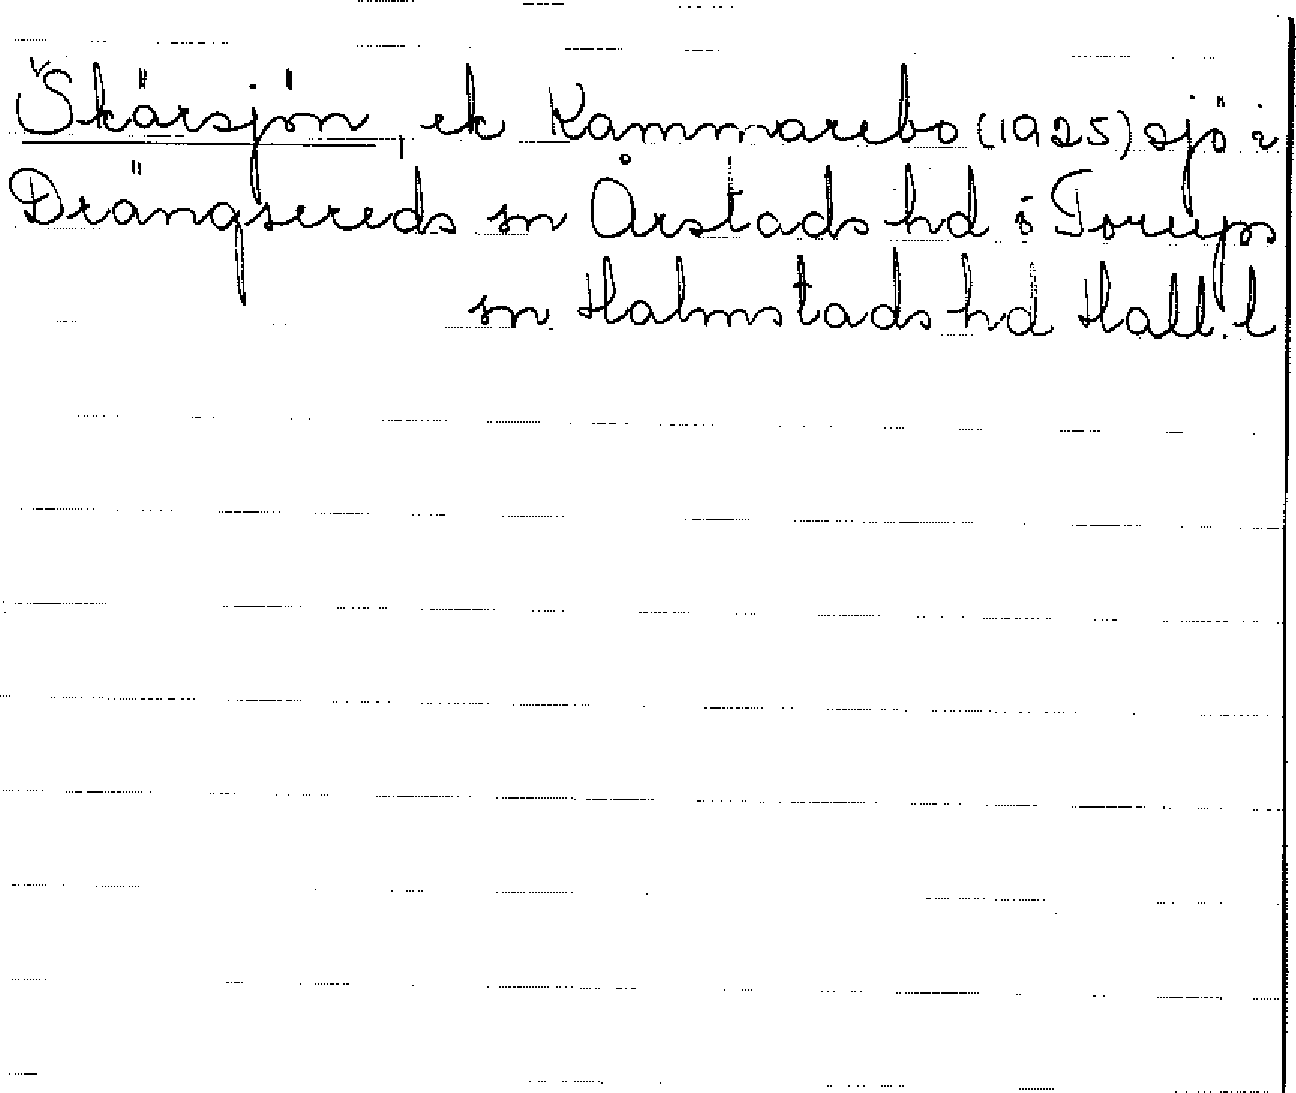 Skärsjön, ek Kammarebo (1925) sjö i
Drängsereds sn Årstads hd i Torups
sn Halmstads hd Hall. l